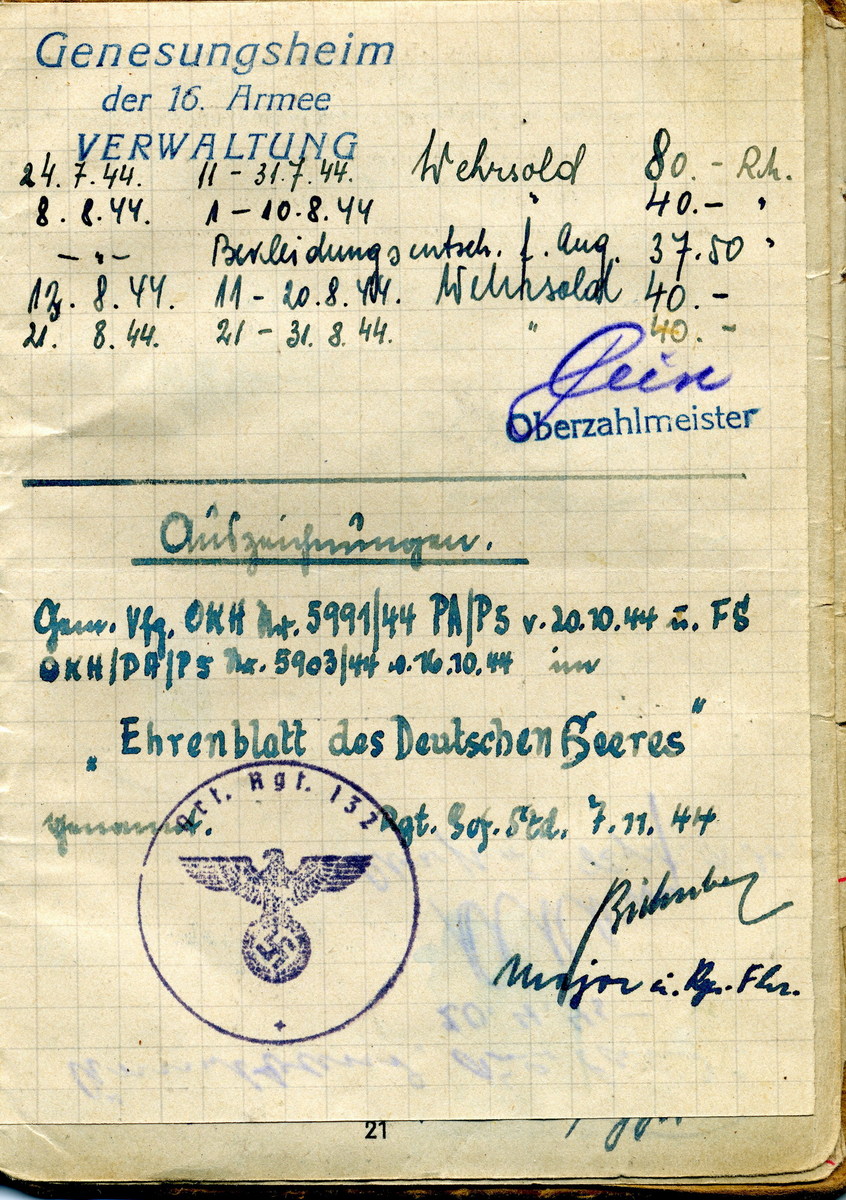 Genesungsheim
der 16. Armee
VERWALTUNG
24.7.44. 11 - 31.7.44. Wehrsold 80.- R.M.
8. 8.44. 1 - 10.8.44 " 40.- "
- " - Bekleidungsentsch. f. Aug. 37.50 "
12. 8.44. 11 - 20.8.44. Wehrsold 40.-
21. 8.44. 21 - 31.8.44. " 40.-
Oberzahlmeister
Auszeichnungen.
Gem. Vfg. OKH Nr. 5991/44 PA/P5 v. 20.10.44 u. FS
OKH/PA/P5 Nr. 5903/44 v. 16.10.44 im
„Ehrenblatt des Deutschen Heeres"
genannt. Rgt. Gef. Std. 7.11.44
Art. Rgt. 132
Major u. Rgt. Fhr.
21